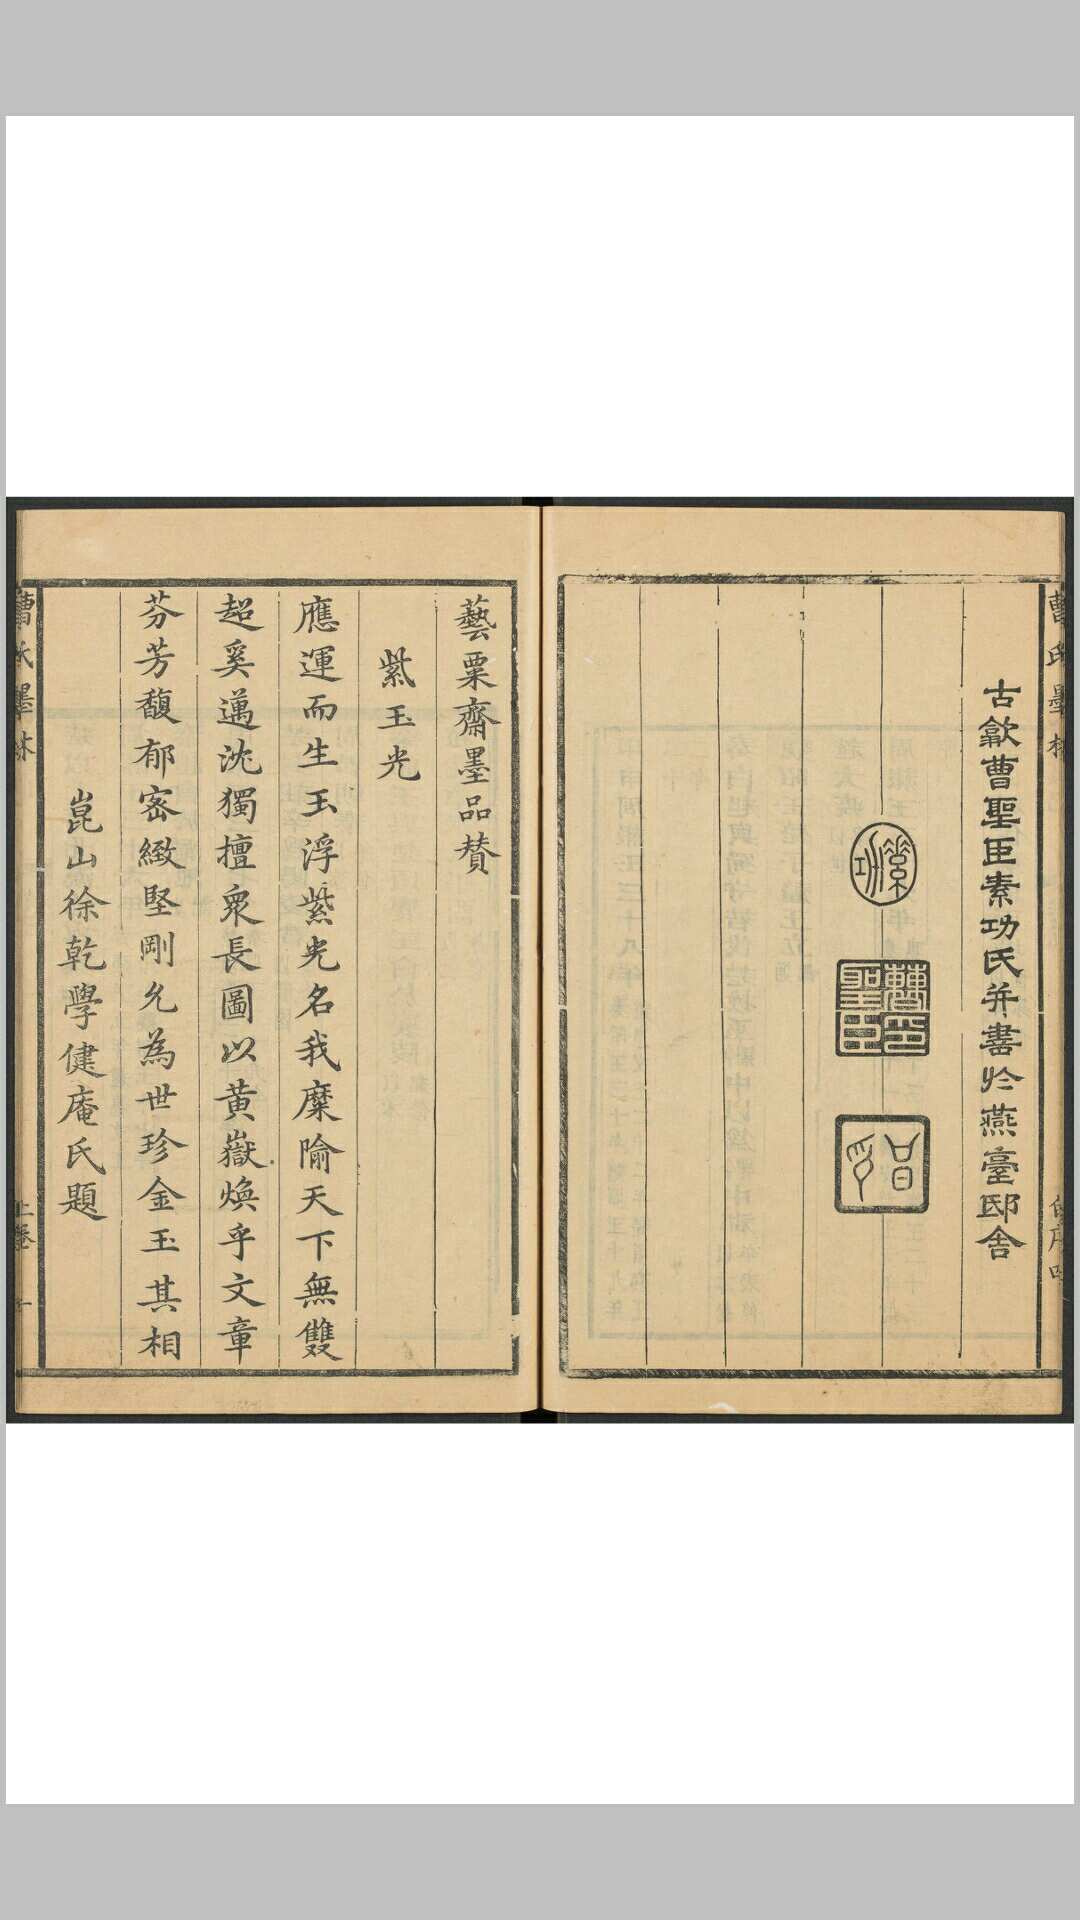 古歙曹聖臣素功氏并書於燕臺邸舍
素功
曹聖臣印
藝粟齋墨品贊
紫玉光
應運而生玉浮紫光名我糜隃天下無雙
超奚邁沈獨擅衆長圖以黄嶽煥乎文章
芬芳馥郁密緻堅剛允為世珍金玉其相
崑山徐乾學健庵氏題
曹氏墨林